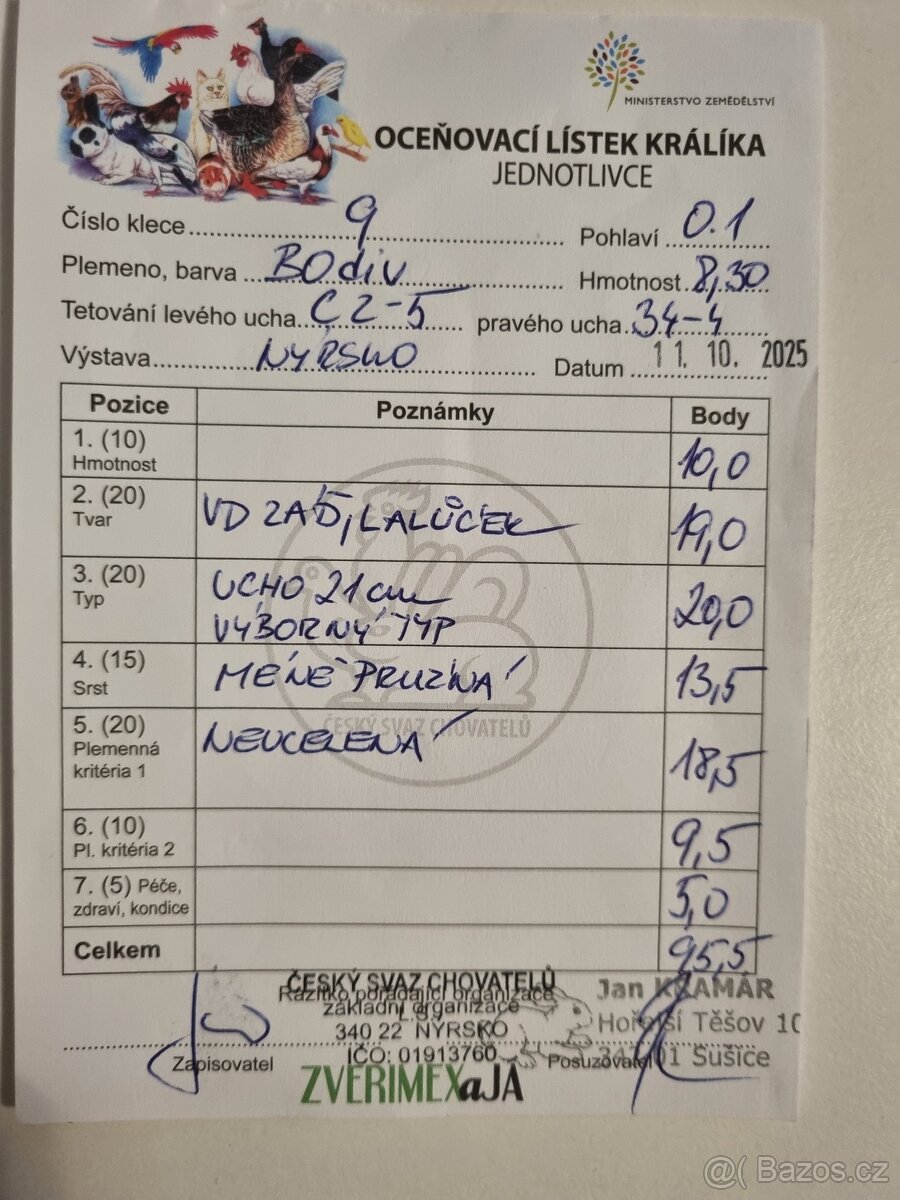 MINISTERSTVO ZEMĚDĚLSTVÍ
OCEŇOVACÍ LÍSTEK KRÁLÍKA
JEDNOTLIVCE
Číslo klece 9 Pohlaví 0.1
Plemeno, barva BOdiv Hmotnost 8,30
Tetování levého ucha CZ-5 pravého ucha 34-4
Výstava NÝRSKO Datum 11. 10. 2025
Pozice Poznámky Body
1. (10) Hmotnost 10,0
2. (20) Tvar VD ZÁĎ, LALŮČEK 19,0
3. (20) Typ UCHO 21 cm 20,0
VÝBORNÝ TYP
4. (15) Srst MÉNĚ PRUŽNÁ 13,5
5. (20) Plemenná kritéria 1 NEUCELENÁ 18,5
6. (10) Pl. kritéria 2 9,5
7. (5) Péče, zdraví, kondice 5,0
Celkem 95,5
ČESKÝ SVAZ CHOVATELŮ
ČESKÝ SVAZ CHOVATELŮ
Razítko pořádající organizace
základní organizace
340 22 NÝRSKO
IČO: 01913760
Jan KRAMÁR
Hořejší Těšov 10
01 Sušice
Zapisovatel Posuzovatel
ZVERIMEXaJÁ
@( Bazos.cz